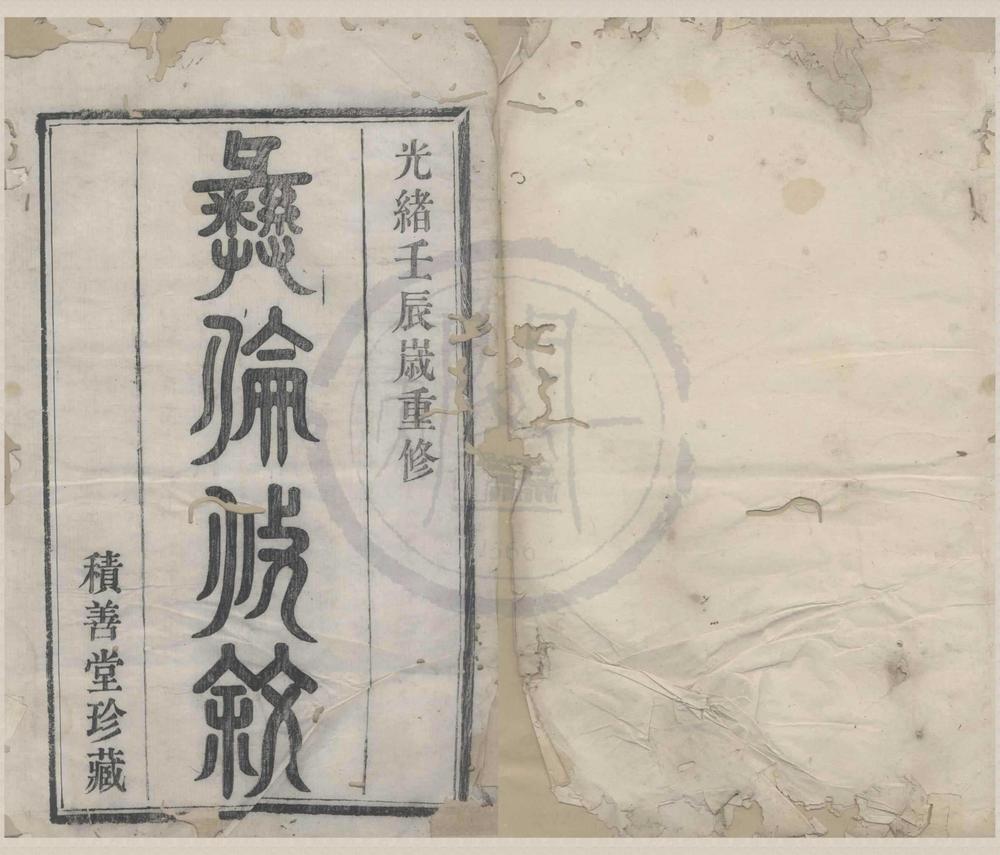 光緒壬辰嵗重修
彝倫攸敘
積善堂珍藏